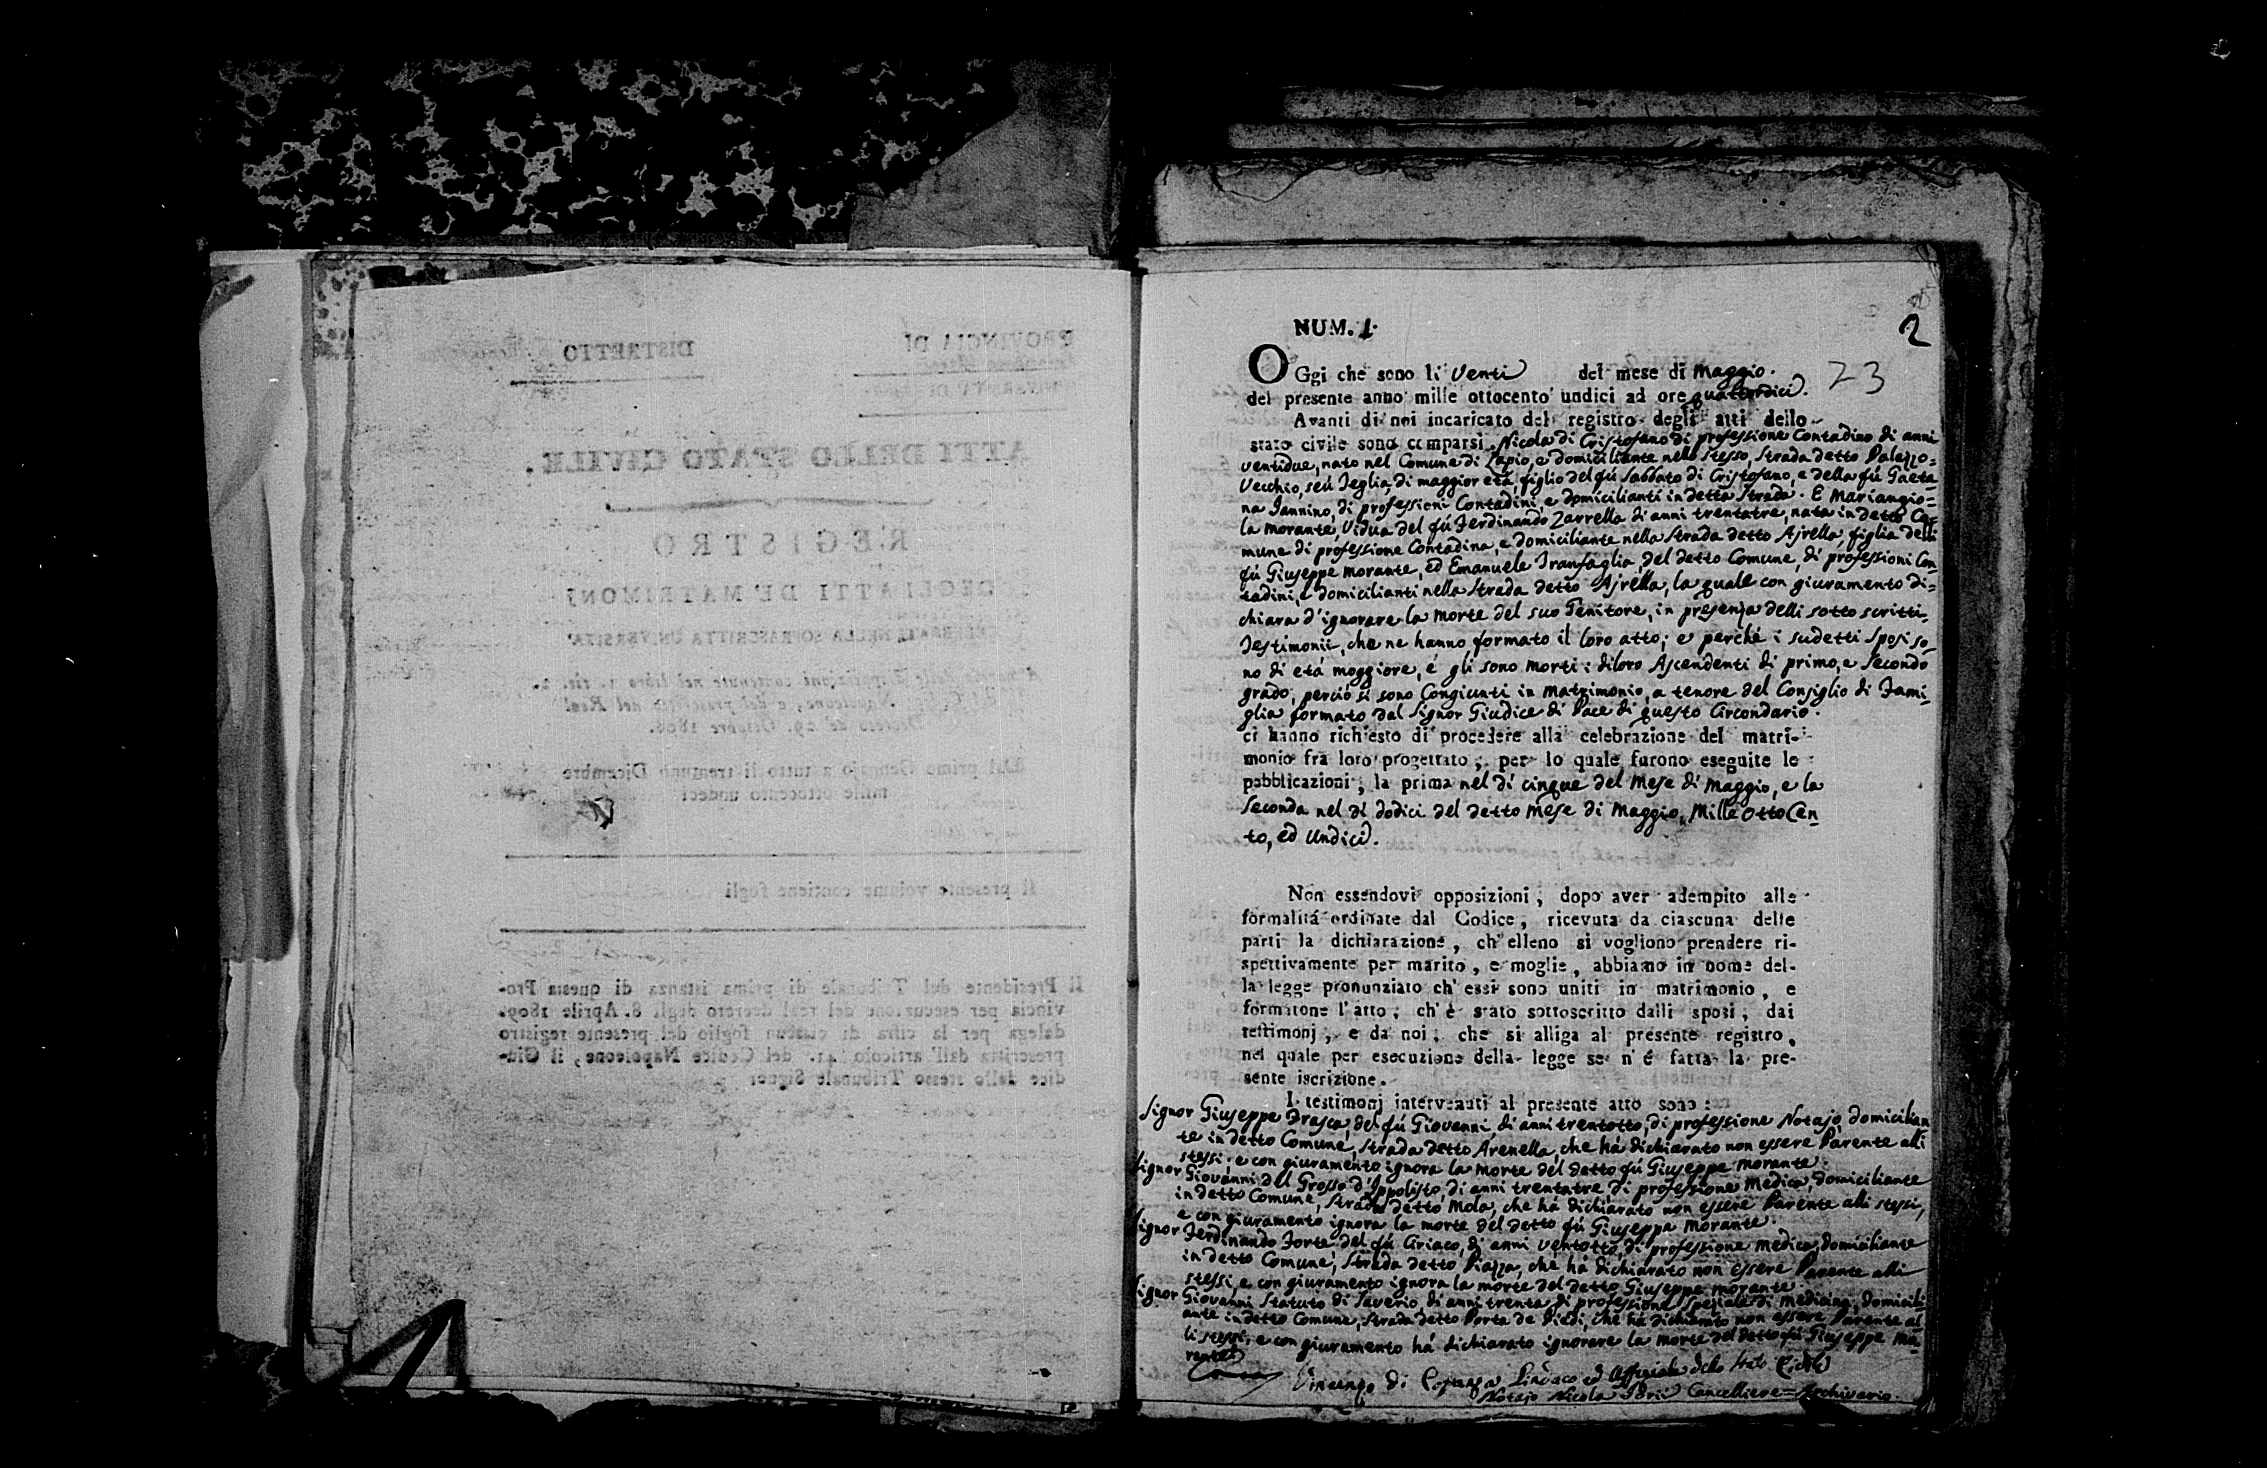 PROVINCIA DI DISTRETTO
UNIVERSITA DI
ATTI DELLO STATO CIVILE.
REGISTRO
DEGLI ATTI DE' MATRIMONJ
NELLA SOPRASCRITTA UNIVERSITA'
contenute nel libro 1. tit. 2.
Napoleone, e del prescritto nel Real
Decreto de' 29. Ottobre 1808.
Dal primo Gennajo a tutto li trentuno Dicembre
mille ottocento undeci
Il presente volume contiene fogli
Il Presidente del Tribunale di prima istanza di questa Pro-
vincia per esecuzione del real decreto degli 8. Aprile 1809.
delega per la cifra di ciascun foglio del presente registro
prescritta dall' articolo 41. del Codice Napoleone, il Giu-
dice dello stesso Tribunale Signor
2
NUM. 1.
23
OGgi che sono li Venti del mese di Maggio.
del presente anno mille ottocento undici ad ore quattordici.
Avanti di noi incaricato del registro degli atti dello
stato civile sono comparsi Nicola di Cristofano di professione Contadino di anni
ventidue, nato nel Comune di Lapio, e domiciliante nello stesso, strada detto Palazzo=
Vecchio, seù Teglia, di maggior età, figlio del fù Sabbato di Cristofano, e della fù Gaeta=
na Iannino, di professioni Contadini, e domicilianti in detta strada. E Mariangio=
la Morante, Vidua del fù Ferdinando Zarrella di anni trentatre, nata in detto Co=
mune di professione Contadina, e domiciliante nella strada detto Ajrella, figlia delli
fù Giuseppe Morante, ed Emanuele Tranfaglia, del detto Comune, di professioni Con=
tadini, e domicilianti nella strada detto Ajrella, la quale con giuramento di=
chiara d'ignorare la morte del suo Genitore, in presenza delli sotto scritti
Testimonii, che ne hanno formato il loro atto; e perché i sudetti sposi so=
no di etá moggiore, é gli sono morti i diloro Ascendenti di primo, e secondo
grado, perció si sono Congiunti in Matrimonio, a tenore del Consiglio di Fami=
glia formato dal Signor Giudice di Pace di questo Circondario.
ci hanno richiesto di procedere alla celebrazione del matri-
monio fra loro progettato; per lo quale furono eseguite le
pubblicazioni, la prima nel dí cinque del Mese di Maggio, e la
seconda nel dí dodici del detto Mese di Maggio, Mille ottocen=
to, ed Undici.
Non essendovi opposizioni, dopo aver adempito alle
formalitá ordinate dal Codice, ricevuta da ciascuna delle
parti la dichiarazione, ch' elleno si vogliono prendere ri-
spettivamente per marito, e moglie, abbiamo in nome del-
la legge pronunziato ch' essi sono uniti in matrimonio, e
formatone l' atto; ch' è stato sottoscritto dalli sposi, dai
testimonj, e da noi; che si alliga al presente registro,
nel quale per esecuzione della legge se n' é fatta la pre-
sente iscrizione.
I testimonj intervenuti al presente atto sono:
Signor Giuseppe Frasca, del fú Giovanni di anni trentotto, di professione Notajo, domicilian
te in detto Comune, strada detto Arenella, che há dichiarato non essere Parente alli
stessi, e con giuramento ignora la morte del detto fú Giuseppe Morante.
Signor Giovanni del Grosso d'Ippolisto, di anni trentatre, di professione Medico, domiciliante
in detto Comune, strada detto Mola, che há dichiarato non essere Parente alli stessi,
e con giuramento ignora la morte del detto fú Giuseppe Morante.
Signor Ferdinando Forte del fú Ciriaco, di anni ventotto, di professione Medico, domiciliante
in detto Comune, strada detto Piazza, che há dichiarato non essere Parente alli
stessi, e con giuramento ignora la morte del detto Giuseppe Morante.
Signor Giovanni Statuto di Saverio, di anni trenta, di professione Speziale di Medicina, domicili=
ante in detto Comune, strada detto Porta de Piedi, che há dichiarato non essere Parente al=
li stessi, e con giuramento há dichiarato ignorare la morte del detto fú Giuseppe Mo=
rante.
Vincenzo di Sindaco ed Uffiziale dello Stato Civile
Notajo Nicola Cancelliere = Archivario.